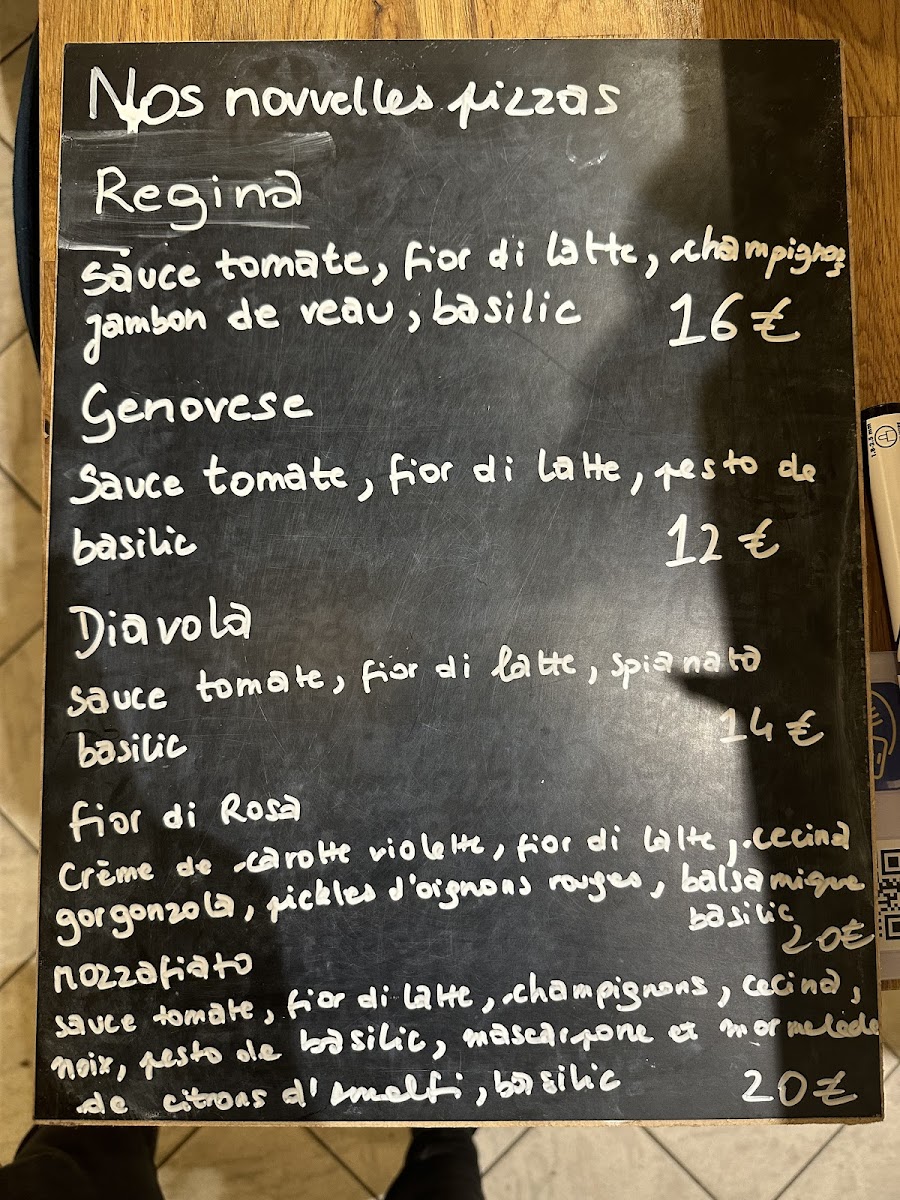 Nos nouvelles pizzas
Regina
sauce tomate, fior di latte, champignons
jambon de veau, basilic 16€
Genovese
Sauce tomate, fior di latte, pesto de
basilic 12€
Diavola
sauce tomate, fior di latte, spianata
basilic 14€
fior di Rosa
Crème de carotte violette, fior di latte, cecina
gorgonzola, pickles d'oignons rouges, balsamique
basilic
20€
mozzafiato
sauce tomate, fior di latte, champignons, cecina,
noix, pesto de basilic, mascarpone et mormelade
de citrons d'Amalfi, basilic 20€